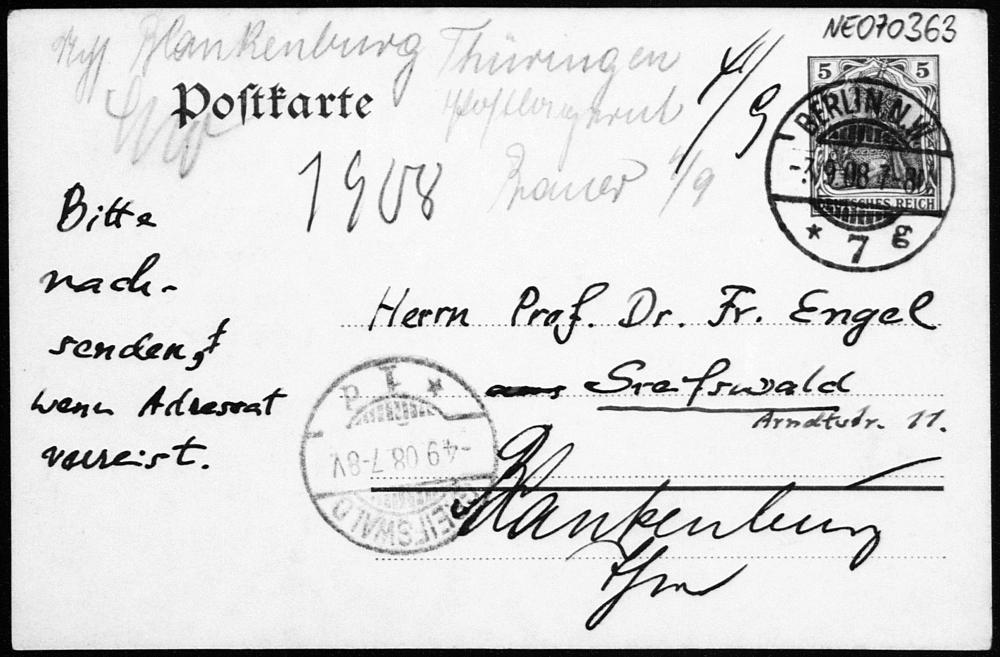 NE070363
Blankenburg Thüringen
Postkarte
postlagernd
4/9
1908
Bauer 4/9
5 5
DEUTSCHES REICH
BERLIN N.W.
9 08 7-8
* 7 g
Bitte
nach-
senden,
wenn Adressat
verreist.
Herrn Prof. Dr. Fr. Engel
Greifswald
Arndtstr. 11.
Blankenburg
Thür
GREIFSWALD
-4 9 08 7-8V